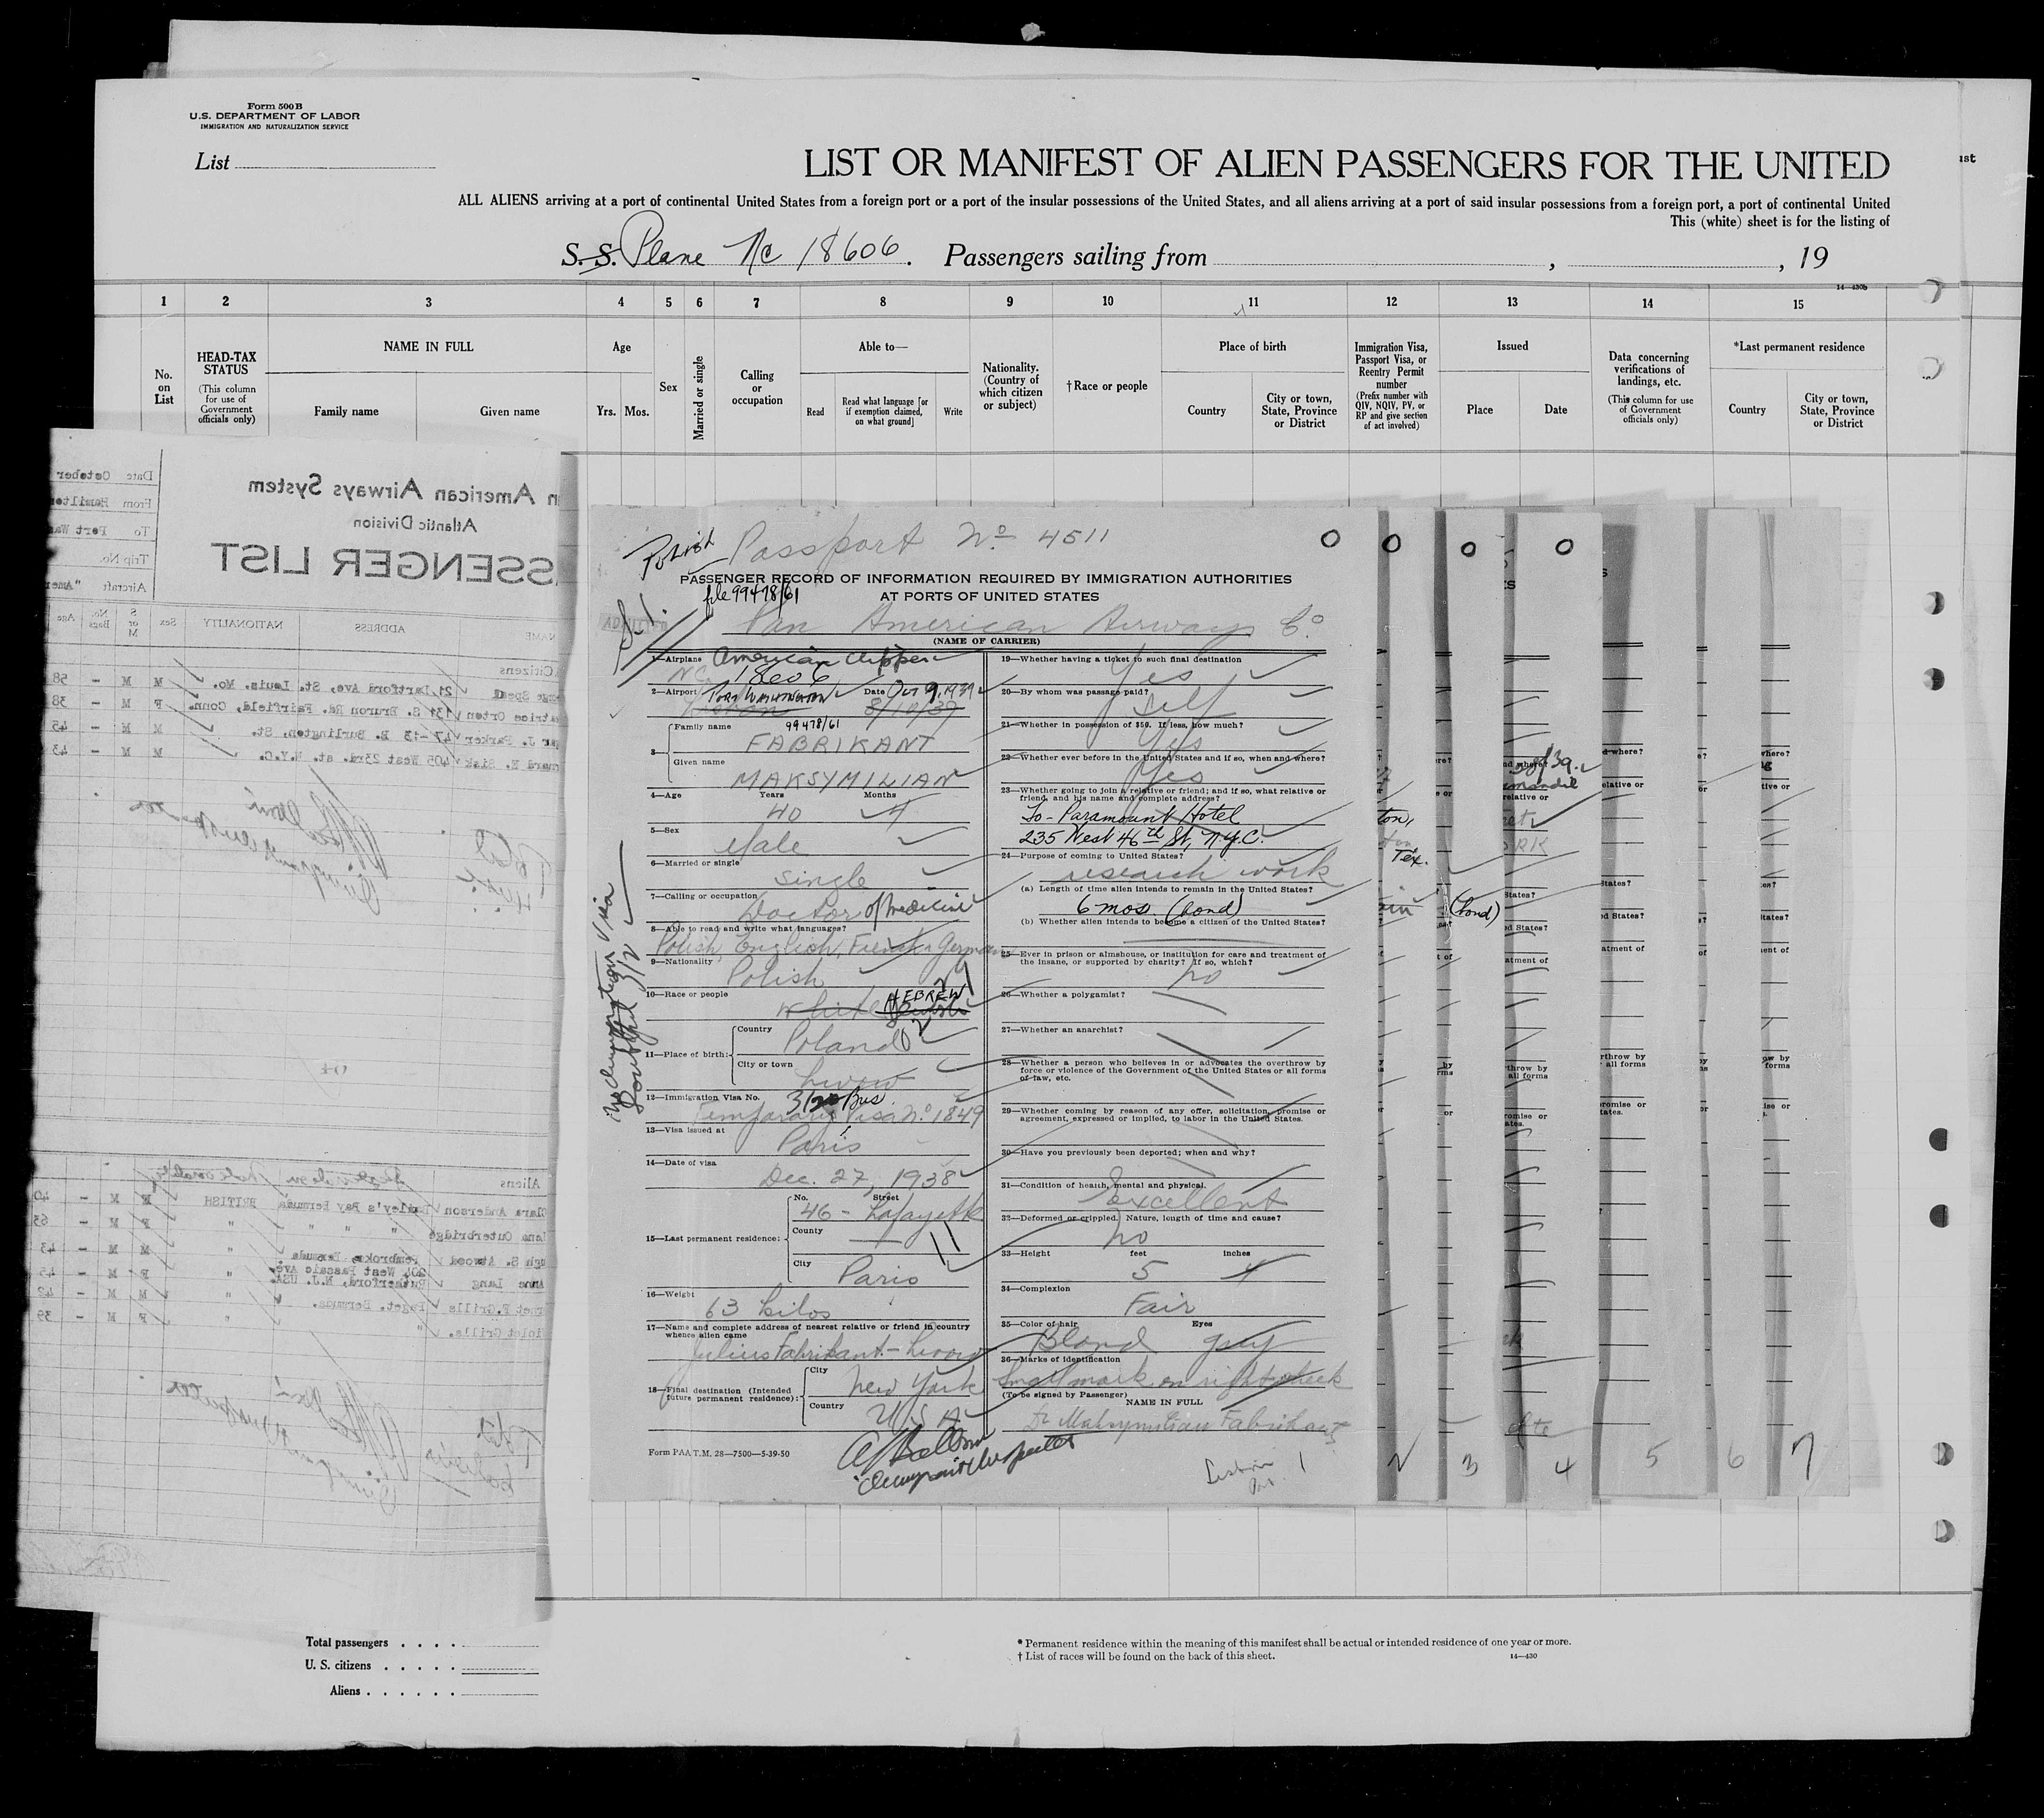 Form 500 B
U.S. DEPARTMENT OF LABOR
IMMIGRATION AND NATURALIZATION SERVICE
List
LIST OR MANIFEST OF ALIEN PASSENGERS FOR THE UNITED
ALL ALIENS arriving at a port of continental United States from a foreign port or a port of the insular possessions of the United States, and all aliens arriving at a port of said insular possessions from a foreign port, a port of continental United
This (white) sheet is for the listing of
S. S. Plane Nc 18606. Passengers sailing from , , 19
14—430b
1 2 3 4 5 6 7 8 9 10 11 12 13 14 15
No. on List
HEAD-TAX STATUS
(This column for use of Government officials only)
NAME IN FULL
Family name
Given name
Age
Yrs. Mos.
Sex
Married or single
Calling or occupation
Able to—
Read
Read what language [or if exemption claimed, on what ground]
Write
Nationality. (Country of which citizen or subject)
†Race or people
Place of birth
Country
City or town, State, Province or District
Immigration Visa, Passport Visa, or Reentry Permit number
(Prefix number with QIV, NQIV, PV, or RP and give section of act involved)
Issued
Place
Date
Data concerning verifications of landings, etc.
(This column for use of Government officials only)
*Last permanent residence
Country
City or town, State, Province or District
n American Airways System
Atlantic Division
SSENGER LIST
Date October
From Hamilton
To Port Wa
Trip No.
Aircraft "Amer
NAME ADDRESS NATIONALITY Sex S or M No. Bags Age
Citizens
21 Dartford Ave, St. Louis. Mo. M M - 58
131 S. Bruron Rd. Fairfield, Conn. F M - 38
J. Parker 47-13 E. Burlington, St. M M - 45
E. Sisk 405 West 23rd. st. N.Y.C. M M - 43
Aliens
Anderson Bailey's Bay Bermuda BRITISH
Outerbridge " " " " F M - 63
S. Atwood Pembroke, Bermuda " M M - 43
Anne Lang 204 West Passaic Ave. Rutherford, N.J. USA. " F M - 45
F. Grills Paget. Bermuda. " M M - 42
Violet Grills. " " F M - 39
Polish Passport No 4511
PASSENGER RECORD OF INFORMATION REQUIRED BY IMMIGRATION AUTHORITIES
AT PORTS OF UNITED STATES
file 99478/61
ADMITTED
Pan American Airways Co
(NAME OF CARRIER)
1—Airplane American Clipper
NC 18606
2—Airport Port Washington Date Oct 9, 1939
8/10/39
3—
Family name 99478/61
FABRIKANT
Given name
MAKSYMILIAN
4—Age Years Months
40 4
5—Sex
Male
6—Married or single
single
7—Calling or occupation
Doctor of medicine
8—Able to read and write what languages?
Polish, English, French, German
9—Nationality
Polish
10—Race or people
white HEBREW
11—Place of birth:
Country
Poland
City or town
Lwow
12—Immigration Visa No. 3(2) Bus.
Temporary Visa No. 1849
13—Visa issued at
Paris
14—Date of visa
Dec. 27, 1938
15—Last permanent residence:
No. Street
46 - Lafayette
County
City
Paris
16—Weight
63 kilos
17—Name and complete address of nearest relative or friend in country whence alien came
Julius Fabrikant - Lwow
18—Final destination (Intended future permanent residence):
City
New York
Country
USA
Form PAA T.M. 28—7500—5-39-50
No Immigration Visa
19—Whether having a ticket to such final destination
Yes
20—By whom was passage paid?
Self
21—Whether in possession of $50. If less, how much?
Yes
22—Whether ever before in the United States and if so, when and where?
Yes
23—Whether going to join a relative or friend; and if so, what relative or friend, and his name and complete address?
To - Paramount Hotel
235 West 46th St, N.Y.C.
24—Purpose of coming to United States?
research work
(a) Length of time alien intends to remain in the United States?
6 mos. (bond)
(b) Whether alien intends to become a citizen of the United States?
25—Ever in prison or almshouse, or institution for care and treatment of the insane, or supported by charity? If so, which?
no
26—Whether a polygamist?
27—Whether an anarchist?
28—Whether a person who believes in or advocates the overthrow by force or violence of the Government of the United States or all forms of law, etc.
29—Whether coming by reason of any offer, solicitation, promise or agreement, expressed or implied, to labor in the United States.
30—Have you previously been deported; when and why?
31—Condition of health, mental and physical.
Excellent
32—Deformed or crippled. Nature, length of time and cause?
no
33—Height feet inches
5 4
34—Complexion
Fair
35—Color of hair Eyes
Blond gray
36—Marks of identification
Small mark on right cheek
(To be signed by Passenger)
NAME IN FULL
Dr Maksymilian Fabrikant
Immigrant Inspector
1 2 3 4 5 6 7
Tex.
(bond)
Total passengers . . . .
U. S. citizens . . . . .
Aliens . . . . . .
* Permanent residence within the meaning of this manifest shall be actual or intended residence of one year or more.
† List of races will be found on the back of this sheet.
14—430